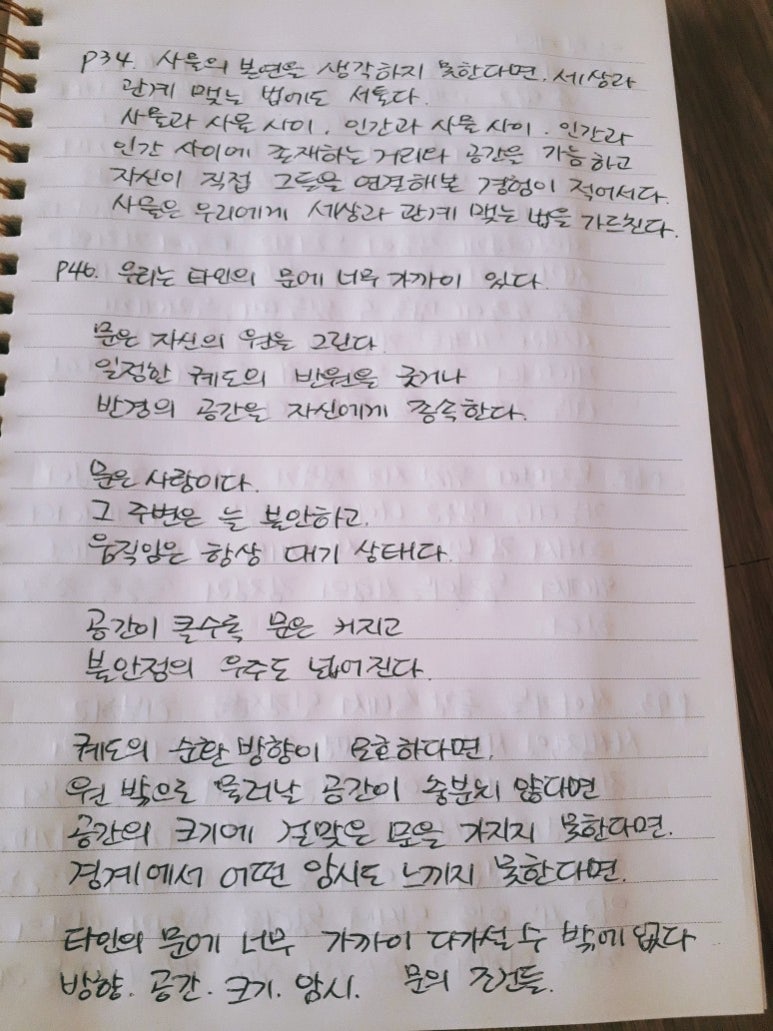 p34. 사물의 본연을 생각하지 못한다면, 세상과
관계 맺는 법에도 서툴다.
사물과 사물 사이, 인간과 사물 사이, 인간과
인간 사이에 존재하는 거리와 공간을 가늠하고
자신이 직접 그들을 연결해본 경험이 적어서다.
사물은 우리에게 세상과 관계 맺는 법을 가르친다.
p46. 우리는 타인의 문에 너무 가까이 있다.
문은 자신의 원을 그린다.
일정한 궤도의 반원을 긋거나
반경의 공간을 자신에게 종속한다.
문은 사랑이다.
그 주변은 늘 불안하고,
움직임은 항상 대기 상태다.
공간이 클수록 문은 커지고
불안정의 우주도 넓어진다.
궤도의 순환 방향이 모호하다면,
원 밖으로 물러날 공간이 충분치 않다면
공간의 크기에 걸맞은 문을 가지지 못한다면,
경계에서 어떤 암시도 느끼지 못한다면,
타인의 문에 너무 가까이 다가설 수 밖에 없다
방향. 공간. 크기. 암시. 문의 조건들.